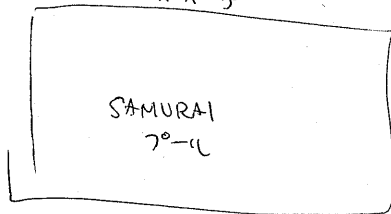 SAMURAI
プール